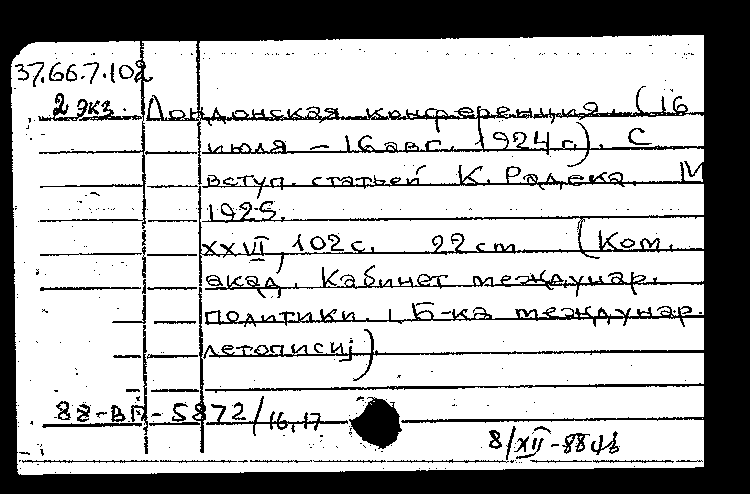 37.66.7.102
2 экз. Лондонская конференция. (16
июля – 16 авг. 1924 г.). С
вступ. статьей К. Радека. М
1925.
XXVI, 102 с. 22 cm (Ком.
акад. Кабинет междунар.
политики. Б-ка междунар.
летописи)
88-ВП-5872/16,17
8/XII-88